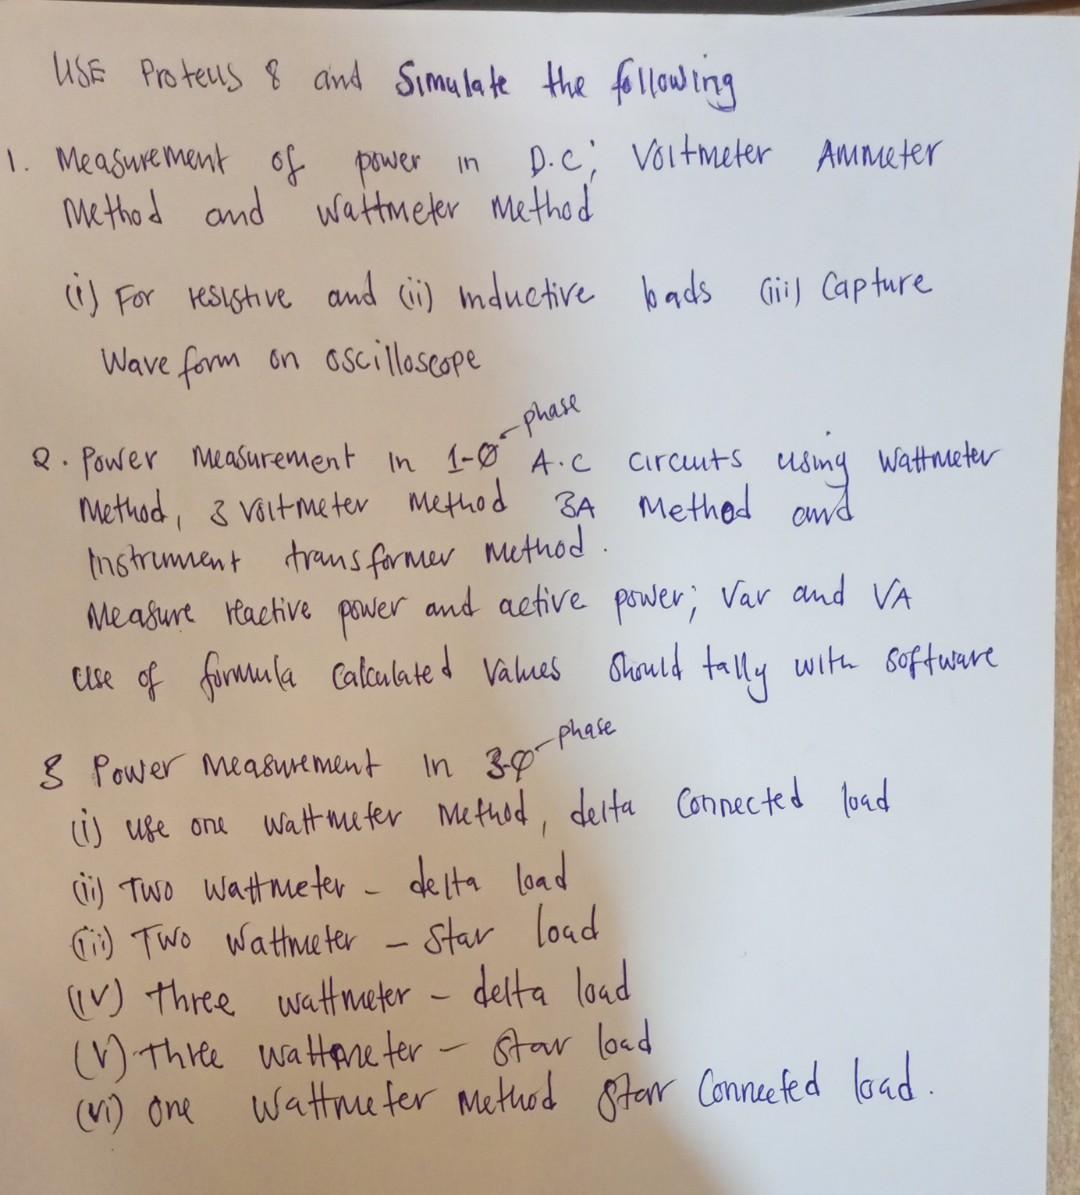 USE Proteus 8 and Simulate the following
1. Measurement of power in D.C; Voltmeter Ammeter
Method and Wattmeter Method
(i) For resistive and (ii) inductive loads (iii) Capture
Wave form on oscilloscope
phase
2. Power Measurement in 1-Ø A.C circuits using Wattmeter
Method, 3 Voltmeter Method 3A Method and
Instrument transformer Method.
Measure reactive power and active power; Var and VA
use of formula Calculated Values Should tally with Software
phase
3 Power Measurement in 3-φ
(i) use one Wattmeter Method, delta Connected load
(ii) Two Wattmeter - delta load
(iii) Two Wattmeter - Star load
(iv) three wattmeter - delta load
(v) three wattmeter - Star load
(vi) one Wattmeter Method Star Connected load.